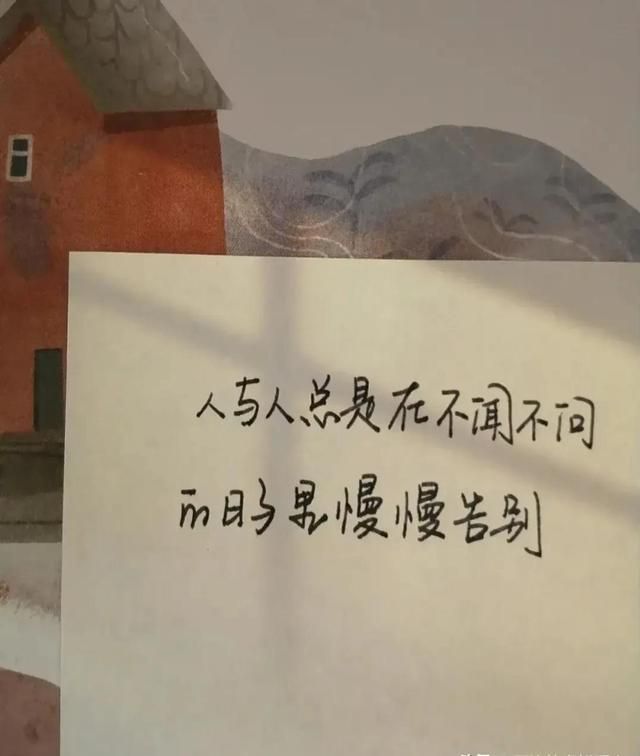 人与人总是在不闻不问
的日子里慢慢告别